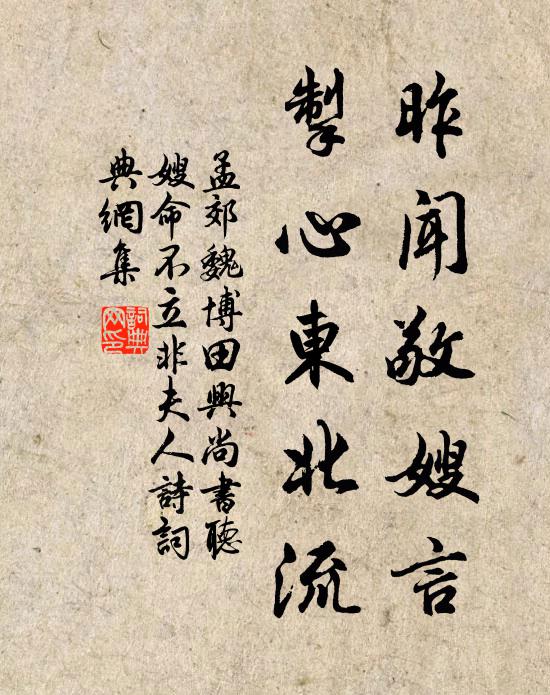 昨聞敬嫂言
掣心東北流
孟郊魏博田興尚書聽
嫂命不立非夫人詩詞
典網集
詞典網印